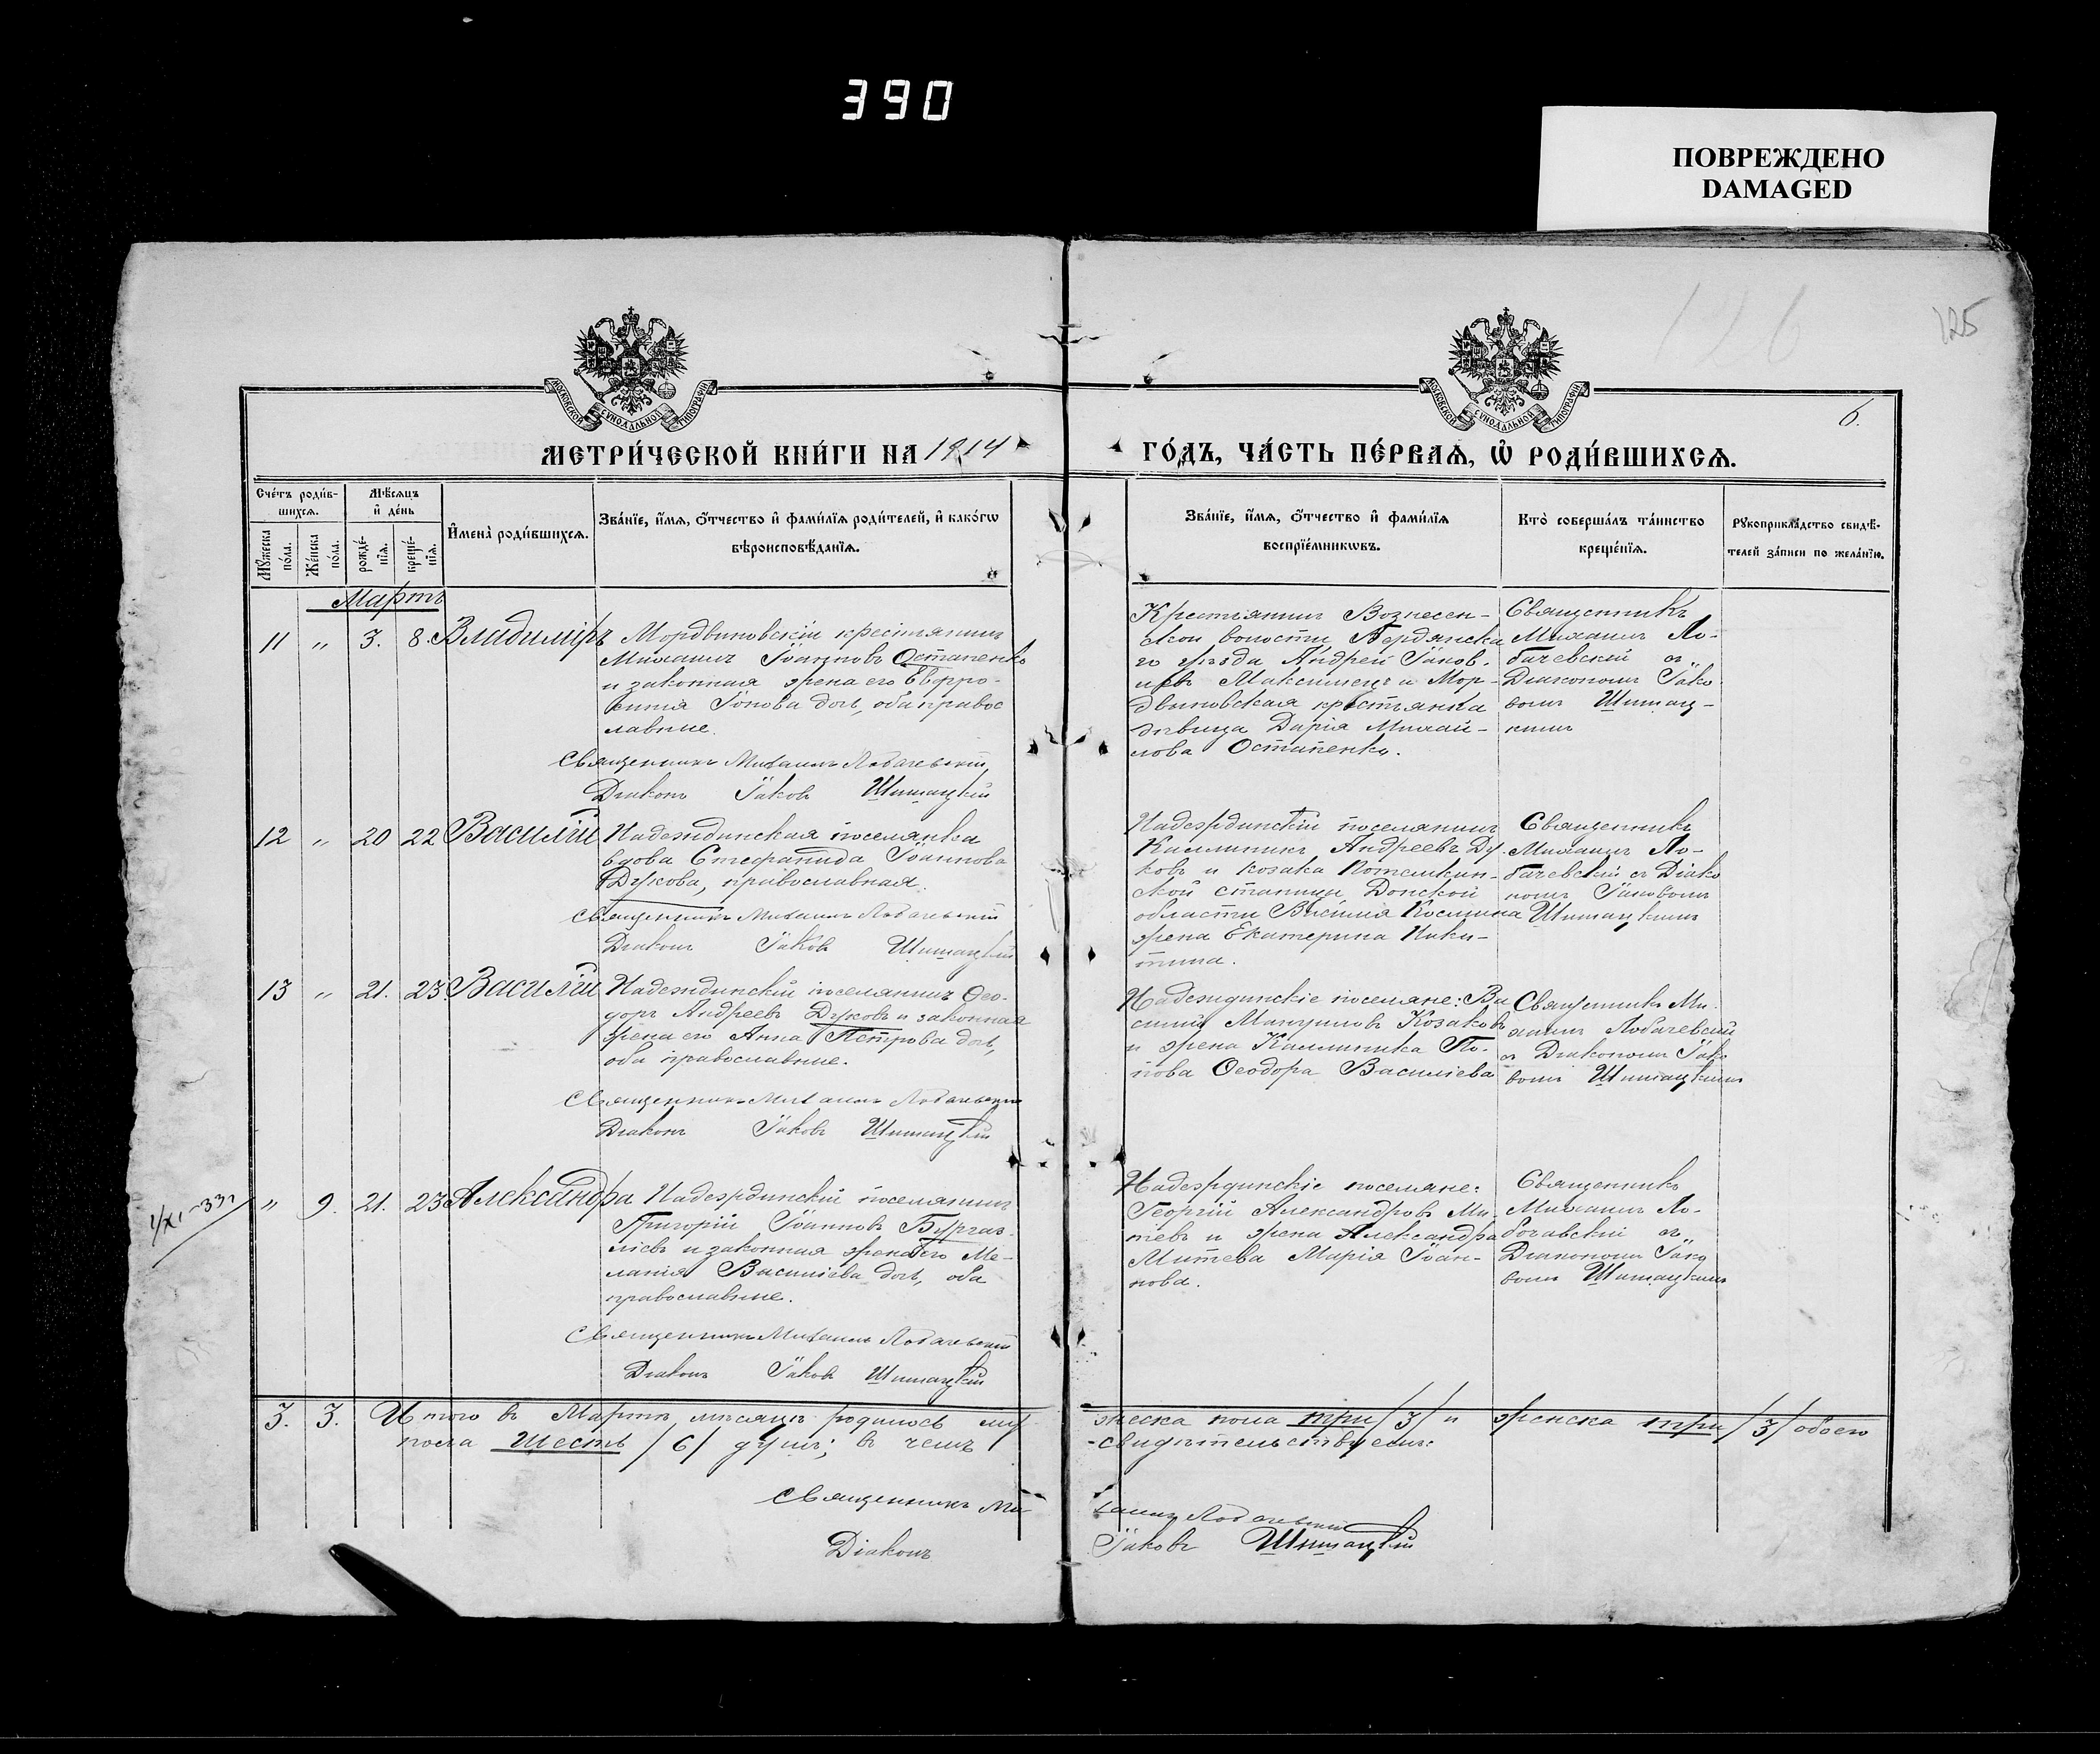 390
ПОВРЕЖДЕНО
DAMAGED
126
125
МОСКОВСКОЙ СѴНОДАЛЬНОЙ ТИПОГРАФІИ
МОСКОВСКОЙ СѴНОДАЛЬНОЙ ТИПОГРАФІИ
6.
МЕТРИ́ЧЕСКОЙ КНИ́ГИ НА 1914
ГО́ДЪ, ЧА́СТЬ ПЕ́РВАѦ, Ѡ҆ РОДИ́ВШИХСѦ.
Сче́тъ роди́в-
шихсѧ.
Мѣ́сѧцъ
и҆ де́нь
Мꙋ́жеска
по́ла.
Же́нска
по́ла.
рожде́-
нїѧ.
креще́-
нїѧ.
И҆мена̀ роди́вшихсѧ.
Зва́нїе, и҆́мѧ, ѻ҆́тчество и҆ фами́лїѧ роди́телей, и҆ како́гѡ
вѣроисповѣ́данїѧ.
Зва́нїе, и҆́мѧ, ѻ҆́тчество и҆ фами́лїѧ
воспрїе́мникѡвъ.
Кто̀ соверша́лъ та́инство
креще́нїѧ.
Рꙋкоприкла́дство свидѣ́-
телей за́писи по жела́нїю.
Мартъ
11 " 3. 8. Владиміръ
Мордвиновскій крестьянинъ
Михаилъ Іоанновъ Остапенко
и законная жена его Евфро-
синія Іонова доч, оба правос
лавные.
Священникъ Михаилъ Лобачевскій
Діаконъ Іаковъ Шишацкій
Крестьянинъ Вознесен-
ской волости Бердянска
го уѣзда Андрей Іаков-
левъ Максименъ и Мор-
двиновская крестьянка
дѣвица Дарія Михай-
лова Остапенко.
Священникъ
Михаилъ Ло-
бачевскій съ
Діакономъ Іако
вомъ Шишац-
кимъ
12 " 20 22 Василій
Надеждинская поселянка
вдова Стефанида Іоаннова
Дукова, православная.
Священникъ Михаилъ Лобачевскій
Діаконъ Іаковъ Шишацкій
Надеждинскій поселянинъ
Каллиникъ Андреевъ Ду
ковъ и козака Потемкин-
ской станицы Донской
области Василія Косьмина
жена Екатерина Ники-
тина.
Священникъ
Михаилъ Ло-
бачевскій съ Діако
номъ Іаковомъ
Шишацкимъ
13 " 21. 23. Василій
Надеждинскій поселянинъ Ѳео-
доръ Андреевъ Дуковъ и законная
жена его Анна Петрова доч,
оба православные.
Священникъ Михаилъ Лобачевскій
Діаконъ Іаковъ Шишацкій
Надеждинскіе поселяне: Ва
силій Мануиловъ Козаковъ
и жена Каллиника По-
пова Ѳеодора Василіева
Священникъ Ми-
хаилъ Лобачевскій
съ Діакономъ Іако
вомъ Шишацкимъ
" 9. 21. 23 Александра
Надеждинскій поселянинъ
Григорій Іоанновъ Бургаз-
ліевъ и законная жена его Ме-
ланія Василіева доч, оба
православные.
Священникъ Михаилъ Лобачевскій
Діаконъ Іаковъ Шишацкій
Надеждинскіе поселяне:
Георгій Александровъ Ми-
тевъ и жена Александра
Митева Марія Іоан-
нова.
Священникъ
Михаилъ Ло-
бачевскій съ
Діакономъ Іако
вомъ Шишацкимъ
3. 3. Итого въ Мартѣ мѣсяцѣ родилось му
жеска пола три /3/ и женска три /3/ обоего
пола шесть /6/ душъ; въ чемъ
свидѣтельствуемъ:
Священникъ Ми
хаилъ Лобачевскій
Діаконъ
Іаковъ Шишацкій